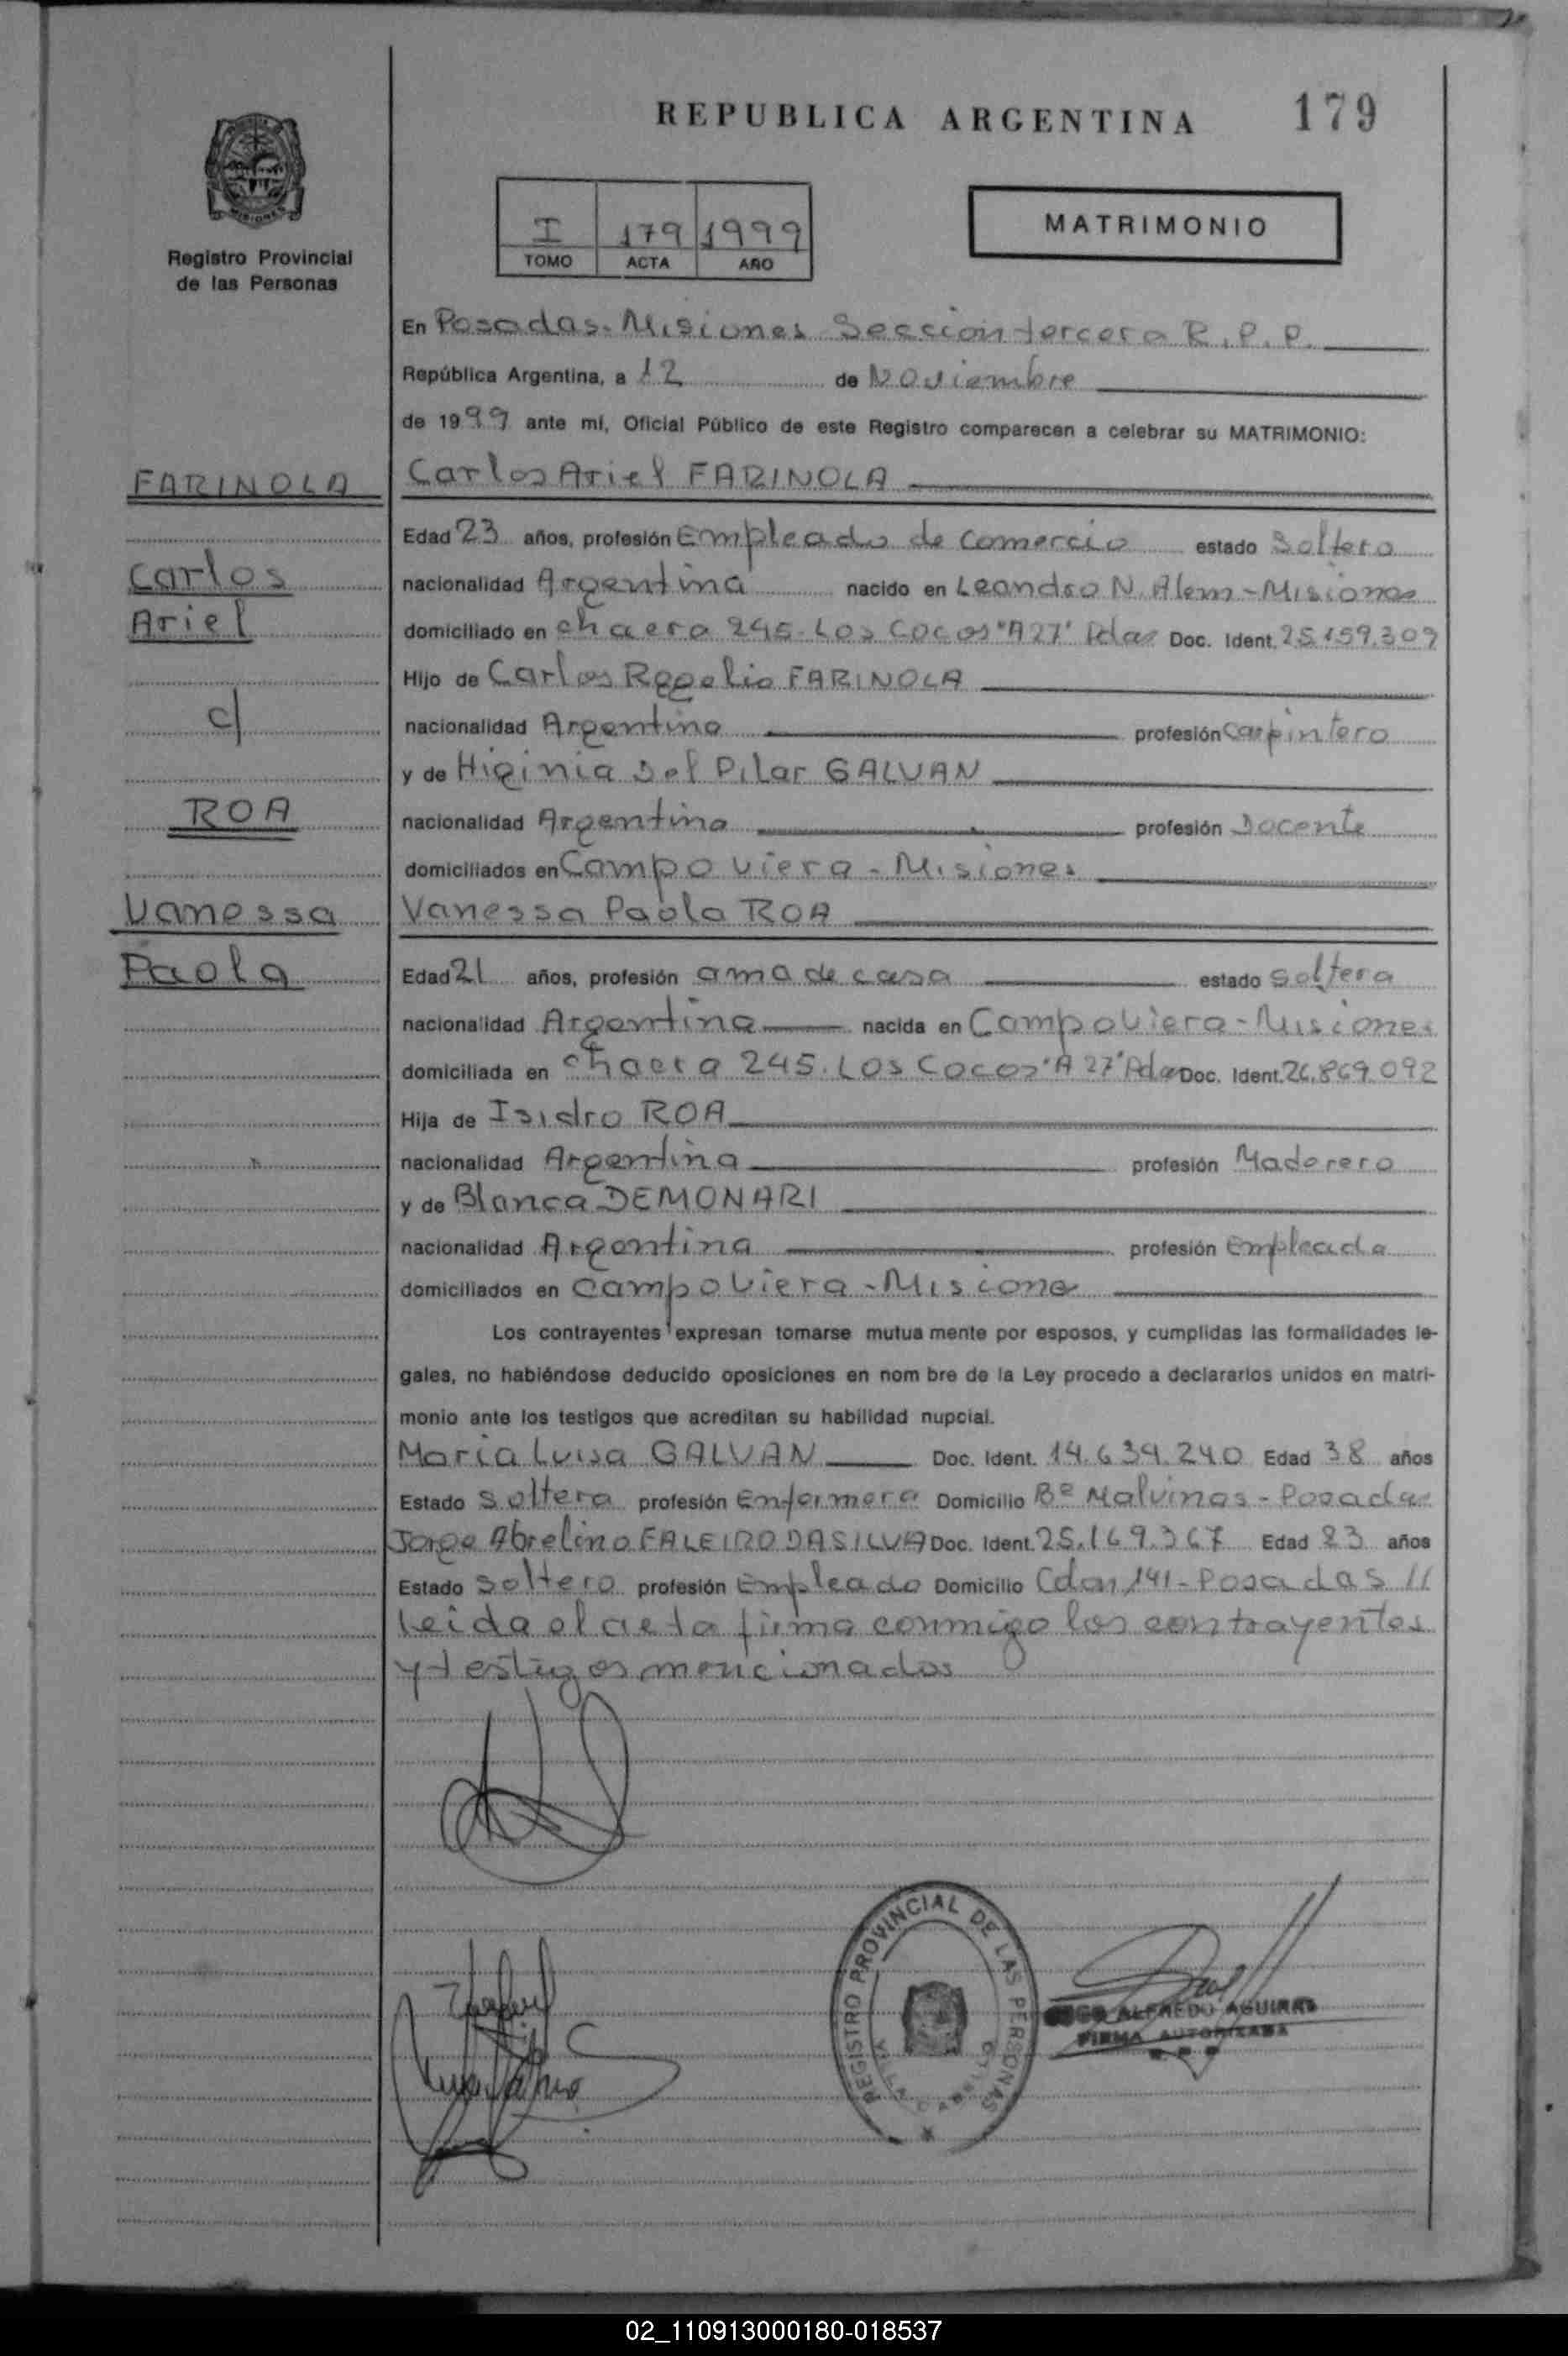 REPUBLICA ARGENTINA 179
MISIONES
Registro Provincial
de las Personas
I 179 1999
TOMO ACTA AÑO
MATRIMONIO
En Posadas-Misiones Seccion tercera R.P.P.
República Argentina, a 12 de Noviembre
de 1999 ante mí, Oficial Público de este Registro comparecen a celebrar su MATRIMONIO:
FARINOLA
Carlos Ariel FARINOLA
Edad 23 años, profesión Empleado de Comercio estado Soltero
Carlos
nacionalidad Argentina nacido en Leandro N. Alem-Misiones
Ariel
domiciliado en chacra 245-Los Cocos "A27" Pdas Doc. Ident. 25.159.309
Hijo de Carlos Rogelio FARINOLA
c/
nacionalidad Argentina profesión Carpintero
y de Higinia del Pilar GALVAN
ROA
nacionalidad Argentina profesión Docente
domiciliados en Campo Viera-Misiones
Vanessa
Vanessa Paola ROA
Paola
Edad 21 años, profesión ama de casa estado soltera
nacionalidad Argentina nacida en Campo Viera-Misiones
domiciliada en chacra 245. Los Cocos "A 27" Pdas Doc. Ident. 26.869.092
Hija de Isidro ROA
nacionalidad Argentina profesión Maderero
y de Blanca DEMONARI
nacionalidad Argentina profesión Empleada
domiciliados en Campo Viera-Misiones
Los contrayentes expresan tomarse mutua mente por esposos, y cumplidas las formalidades le-
gales, no habiéndose deducido oposiciones en nom bre de la Ley procedo a declararlos unidos en matri-
monio ante los testigos que acreditan su habilidad nupcial.
Maria Luisa GALVAN Doc. Ident. 14.639.240 Edad 38 años
Estado Soltera profesión Enfermera Domicilio Bº Malvinas-Posadas
Jorge Abrelino FALEIRO DA SILVA Doc. Ident. 25.169.367 Edad 23 años
Estado Soltero profesión Empleado Domicilio 141-Posadas //
Leida el acta firma conmigo los contrayentes
y testigos mencionados
REGISTRO PROVINCIAL DE LAS PERSONAS
ALFREDO AGUIRRE
FIRMA AUTORIZADA
02_110913000180-018537